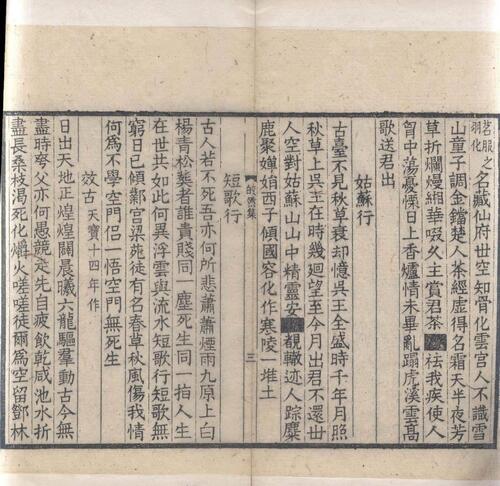 茗服之
羽化
名藏仙府世空知骨化雲宮人不識雪
山童子調金鐺楚人茶經虛得名霜天半夜芳
草折爛熳緗華啜久主賞君茶祛我疾使人
胷中蕩憂慄日上香爐情未畢亂蹋虎溪雲高
歌送君出
姑蘇行
古臺不見秋草衰却憶吳王全盛時千年月照
秋草上吳王在時幾迴望至今月出君不還世
人空對姑蘇山山中精靈安覩轍迹人踪麋
鹿聚嬋娟西子傾國容化作寒陵一堆土
集 三
短歌行
古人若不死吾亦何所悲蕭蕭煙雨九原上白
楊青松葬者誰貴賤同一塵死生同一指人生
在世共如此何異浮雲與流水短歌行短歌無
窮日已傾鄴宫梁苑徒有名春草秋風傷我情
何爲不學空門侶一悟空門無死生
效古 天寶十四年作
日出天地正煌煌闢晨曦六龍驅羣動古今無
盡時夸父亦何愚競走先自疲飲乾咸池水折
盡長桑枝渴死化爝火嗟嗟徒爾爲空留鄧林